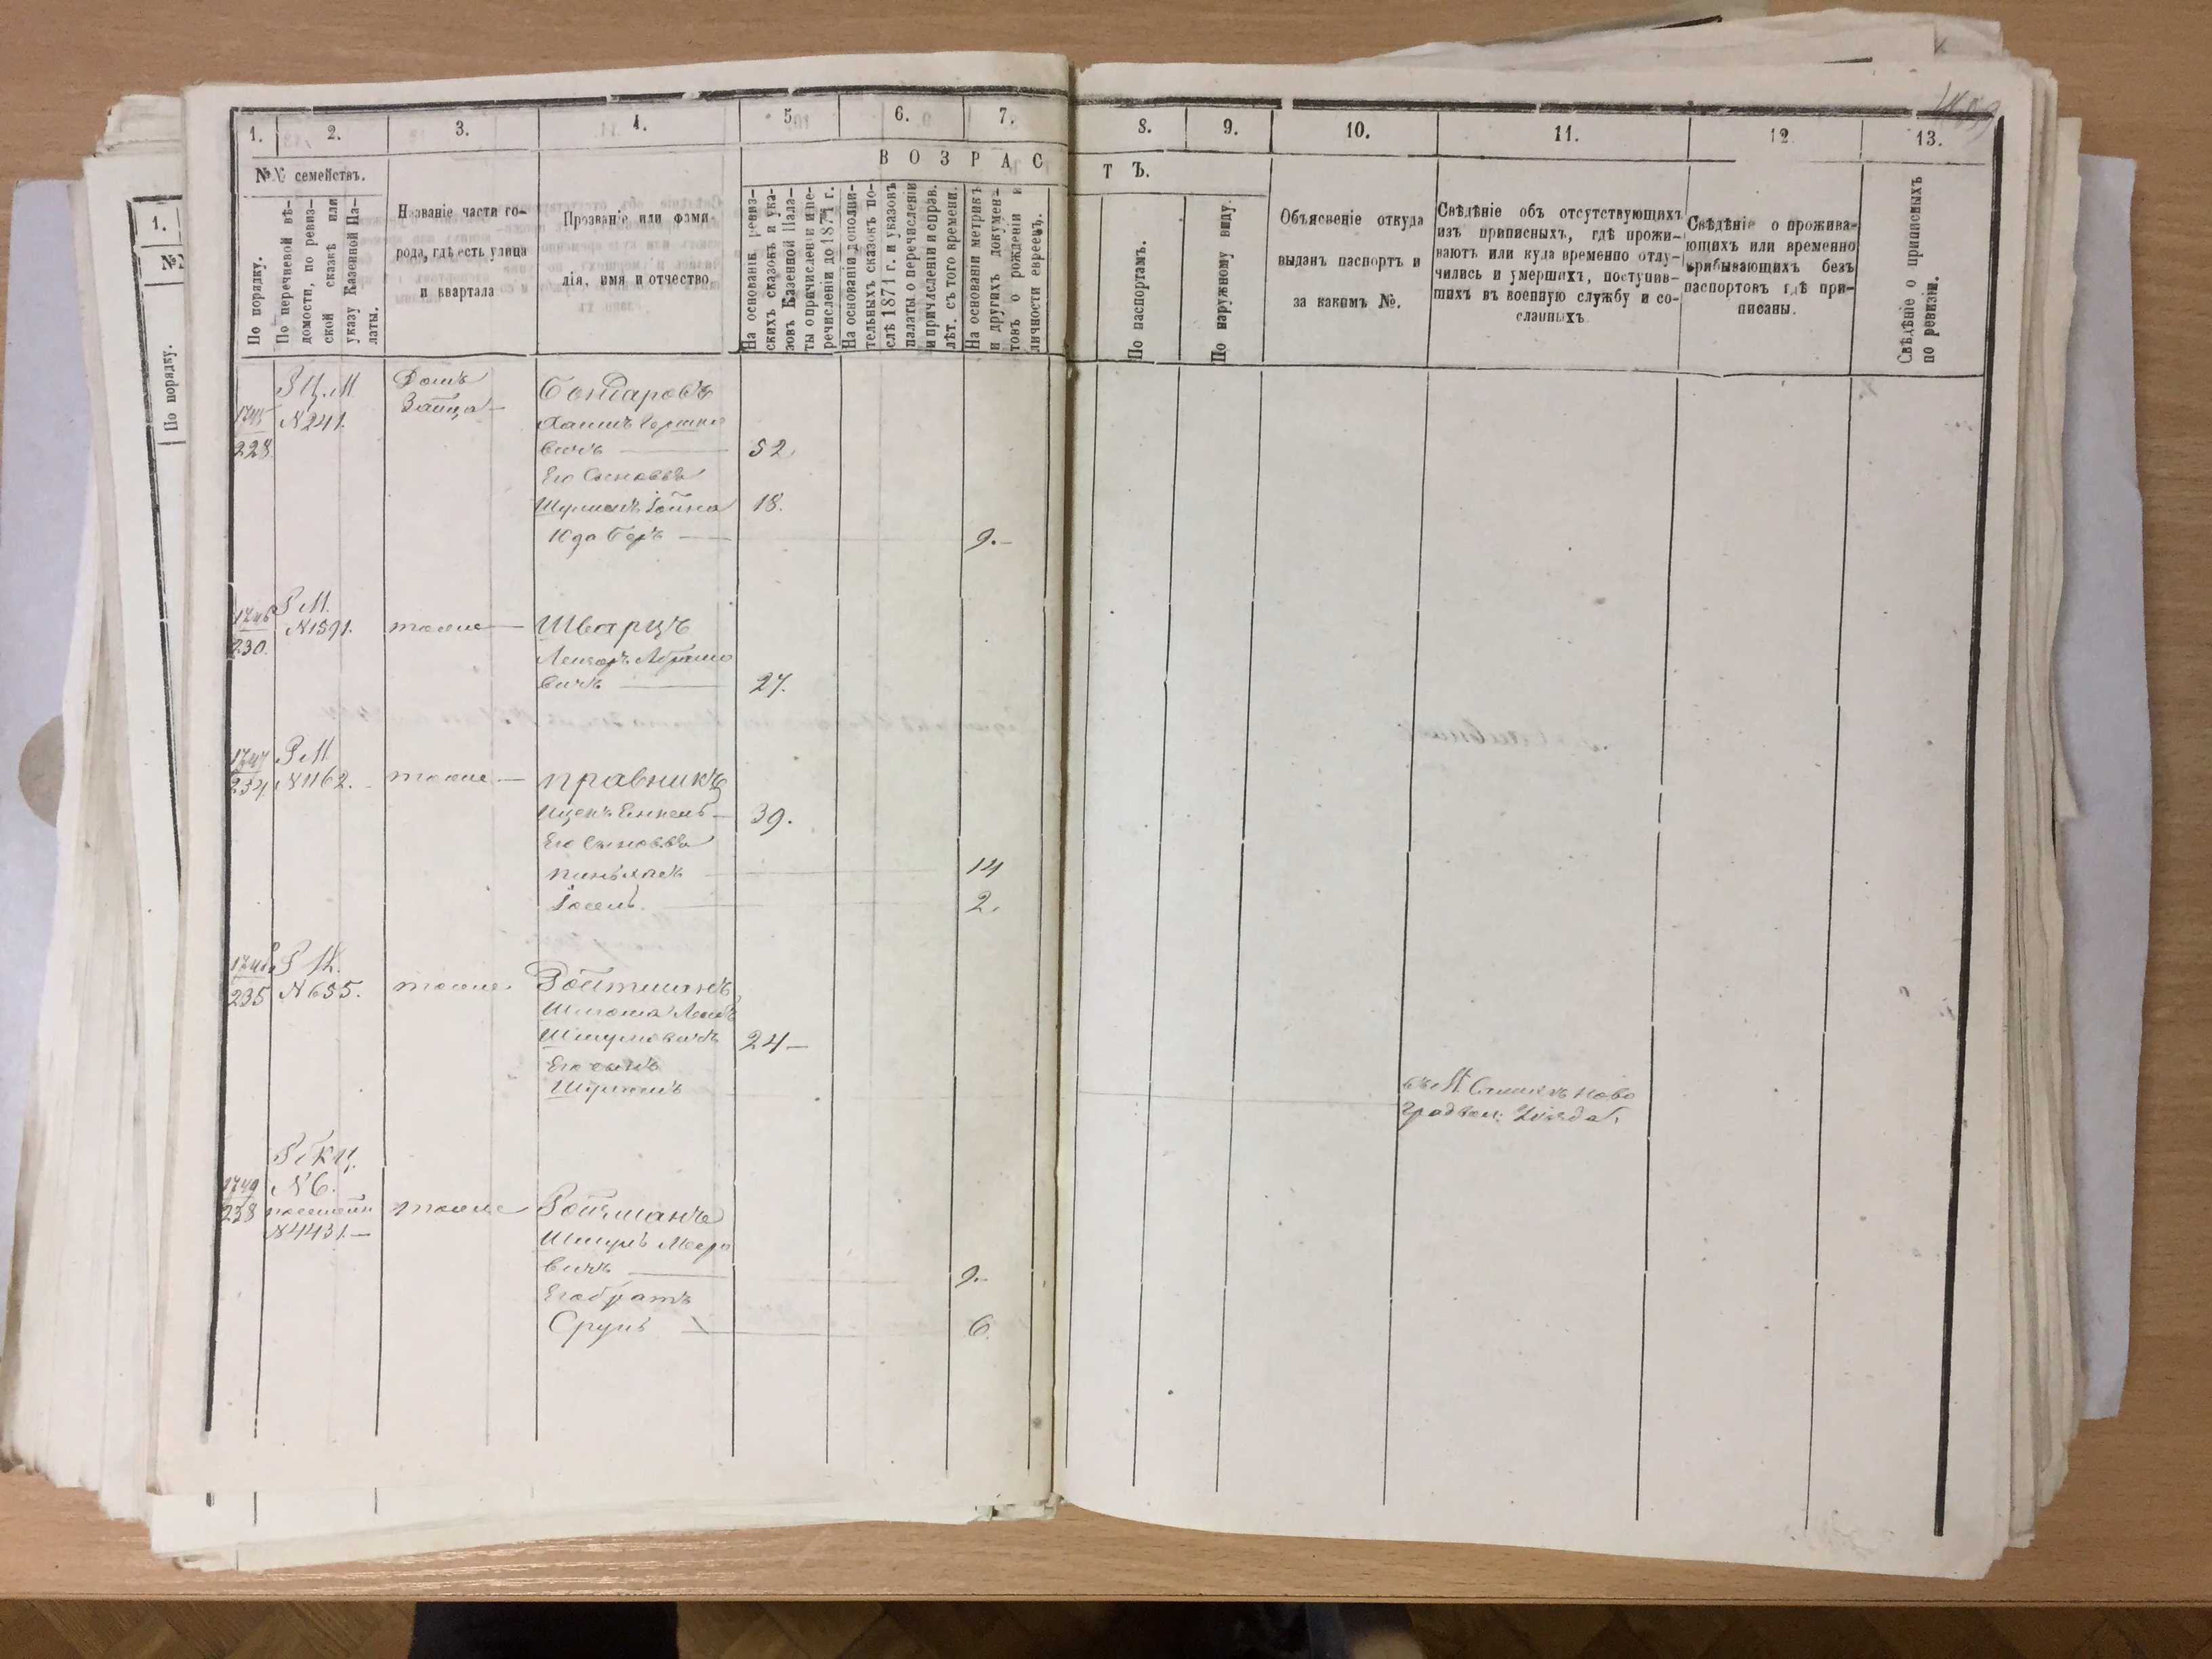 1. 2. 3. 4. 5. 6. 7. 8. 9. 10. 11. 12. 13.
В О З Р А С Т Ъ.
№№ семействъ.
По порядку.
По перечневой вѣ-
домости, по ревиз-
ской сказкѣ или
указу Казенной Па-
латы.
Названіе части го-
рода, гдѣ есть улица
и квартала
Прозваніе или фами-
лія, имя и отчество
На основаніи ревиз-
скихъ сказокъ и ука-
зовъ Казенной Пала-
ты о причисленіи и пе-
речисленіи до 1871 г.
На основаніи дополни-
тельныхъ сказокъ по-
слѣ 1871 г. и указовъ
палаты о перечисленіи
и причисленіи и справ.
лѣт. съ того времени.
На основаніи метрикъ
и другихъ докумен-
товъ о рожденіи и
личности евреевъ.
По паспортамъ.
По наружному виду.
Объясненіе откуда
выданъ паспортъ и
за какимъ №.
Свѣдѣніе объ отсутствующихъ
изъ приписныхъ, гдѣ прожи-
ваютъ или куда временно отлу-
чились и умершихъ, поступив-
шихъ въ военную службу и со-
сланныхъ
Свѣдѣніе о прожива-
ющихъ или временно
прибывающихъ безъ
паспортовъ гдѣ при-
писаны.
Свѣдѣніе о приписныхъ
по ревизіи.
1.
№
По порядку.
1745
228
№ 241.
Домъ
Зайца
Бондаровъ
Хаимъ Гершко
вичъ 52.
Его Сыновья
18.
Юда Беръ 9.
1746
230.
Р М.
№ 1591.
тоже
Шварцъ
Абрамо
вичъ 27.
1747
234.
Р М
№ 1162.
тоже
Правникъ
Ицекъ Енкель 39.
Его Сыновья
Пиньхасъ 14
Іосель. 2.
1748
235
№ 655.
тоже
Ройтманъ
Шмуловичъ 24
Его сынъ
въ М. Ново
град вол: Уѣзда.
1749
238
№ 6.
№ 4431.
тоже
Ройтманъ
Шмуль Мееро
вичъ 9.
Его братъ
Сруль 6.